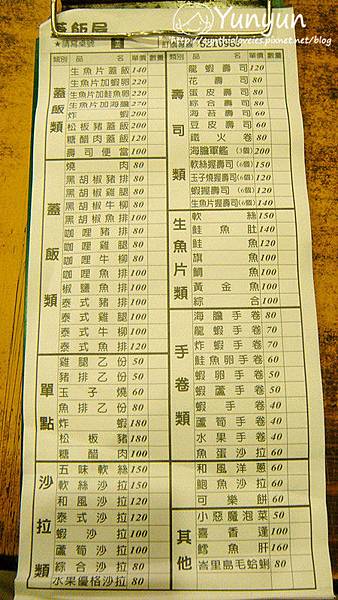 Yunyun
http://cynthialovejcs.pixnet.net/blog
蓋飯屋
★請寫桌號
類別 品名 單價 數量
蓋飯類
生魚片蓋飯 140
生魚片加蝦 220
生魚片加鮭魚卵 220
生魚片加海膽 270
炸蝦 200
松板豬蓋飯 200
糖醋肉蓋飯 120
壽司便當 100
蓋飯類
燒肉 80
黑胡椒豬排 80
黑胡椒雞腿 80
黑胡椒牛柳 80
黑胡椒魚排 100
咖哩豬排 80
咖哩雞腿 80
咖哩牛柳 80
咖哩魚排 100
椒鹽魚排 100
泰式豬排 100
泰式雞腿 100
泰式牛柳 100
泰式魚排 120
單點
雞腿乙份 50
豬排乙份 50
玉子燒 60
魚排乙份 80
炸蝦 180
松板豬 180
糖醋肉 100
沙拉類
五味軟絲 150
軟絲沙拉 150
和風沙拉 120
泰式沙拉 120
蝦沙拉 100
蘆筍沙拉 100
綜合沙拉 80
水果優格沙拉 80
類別 品名 單價 數量
壽司類
龍蝦壽司 120
花壽司 80
蛋皮壽司 80
綜合壽司 80
海苔壽司 60
豆皮壽司 60
鐵火卷 80
海膽軍艦(3個) 200
軟絲握壽司(6個) 150
玉子燒握壽司(6個) 120
蝦握壽司(6個) 120
生魚片握壽司(6個) 140
生魚片類
軟絲 150
鮭魚肚 140
鮭魚 120
旗魚 100
鯛魚 100
黃金魚 100
綜合 100
手卷類
海膽手卷 80
龍蝦手卷 70
炸蝦手卷 70
鮭魚卵手卷 60
蝦卵手卷 50
蝦蘆手卷 50
蝦手卷 40
蘆筍手卷 40
水果手卷 40
魚蛋沙拉 60
和風洋蔥 60
鮑魚沙拉 60
可樂餅 60
其他
小惡魔泡菜 50
喜香蓬 100
鱈魚肝 160
峇里島毛蛤蜊 80